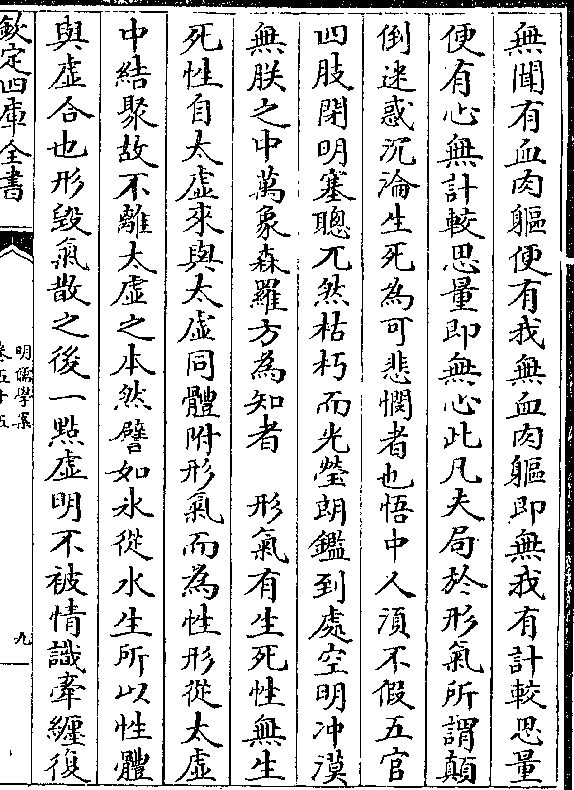 無聞有血肉軀便有我無血肉軀即無我有計較思量
便有心無計較思量即無心此凡夫局於形氣所謂顛
倒迷惑沉淪生死為可悲憫者也悟中人須不假五官
四肢閉明塞聰兀然枯朽而光瑩朗鑑到處空明冲漠
無朕之中萬象森羅方為知者　形氣有生死性無生
死性自太虛來與太虛同體附形氣而為性形從太虛
中結聚故不離太虛之本然譬如氷從水生所以性體
與虛合也形毀氣散之後一點虛明不被情識牽纏復
欽定四庫全書
明儒學案
卷五十五
九